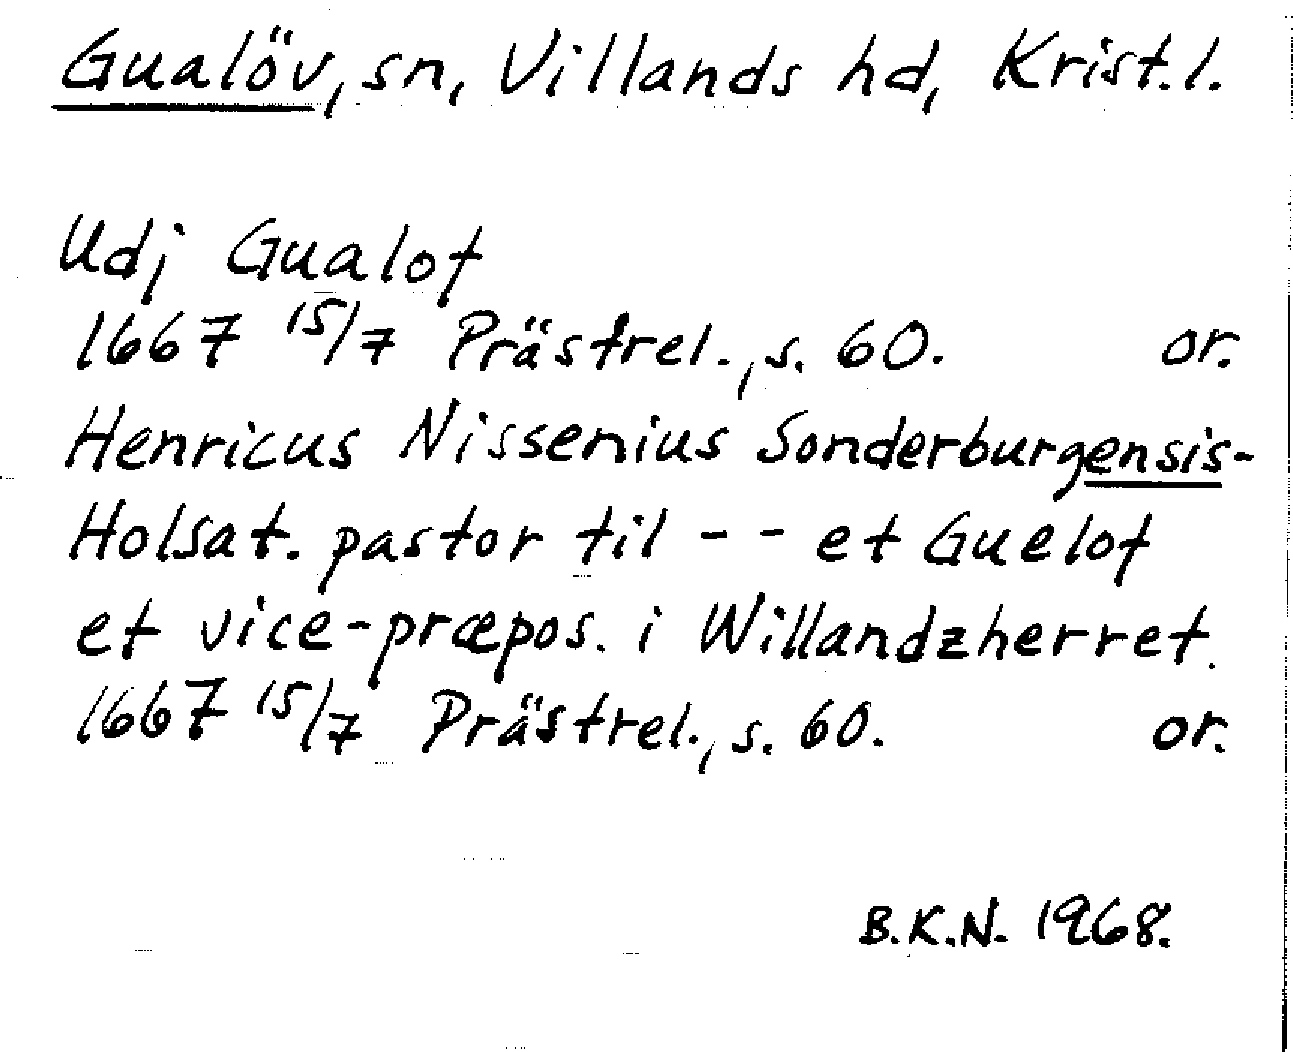 Gualöv, sn, Villands hd, Krist. l.
Udj Gualof
1667 15/7 Prästrel., s. 60. or.
Henricus Nissenius Sonderburgensis-
Holsat. pastor til - - et Guelof
et vice-præpos. i Willandzherret.
1667 15/7 Prästrel., s. 60. or.
B.K.N. 1968.